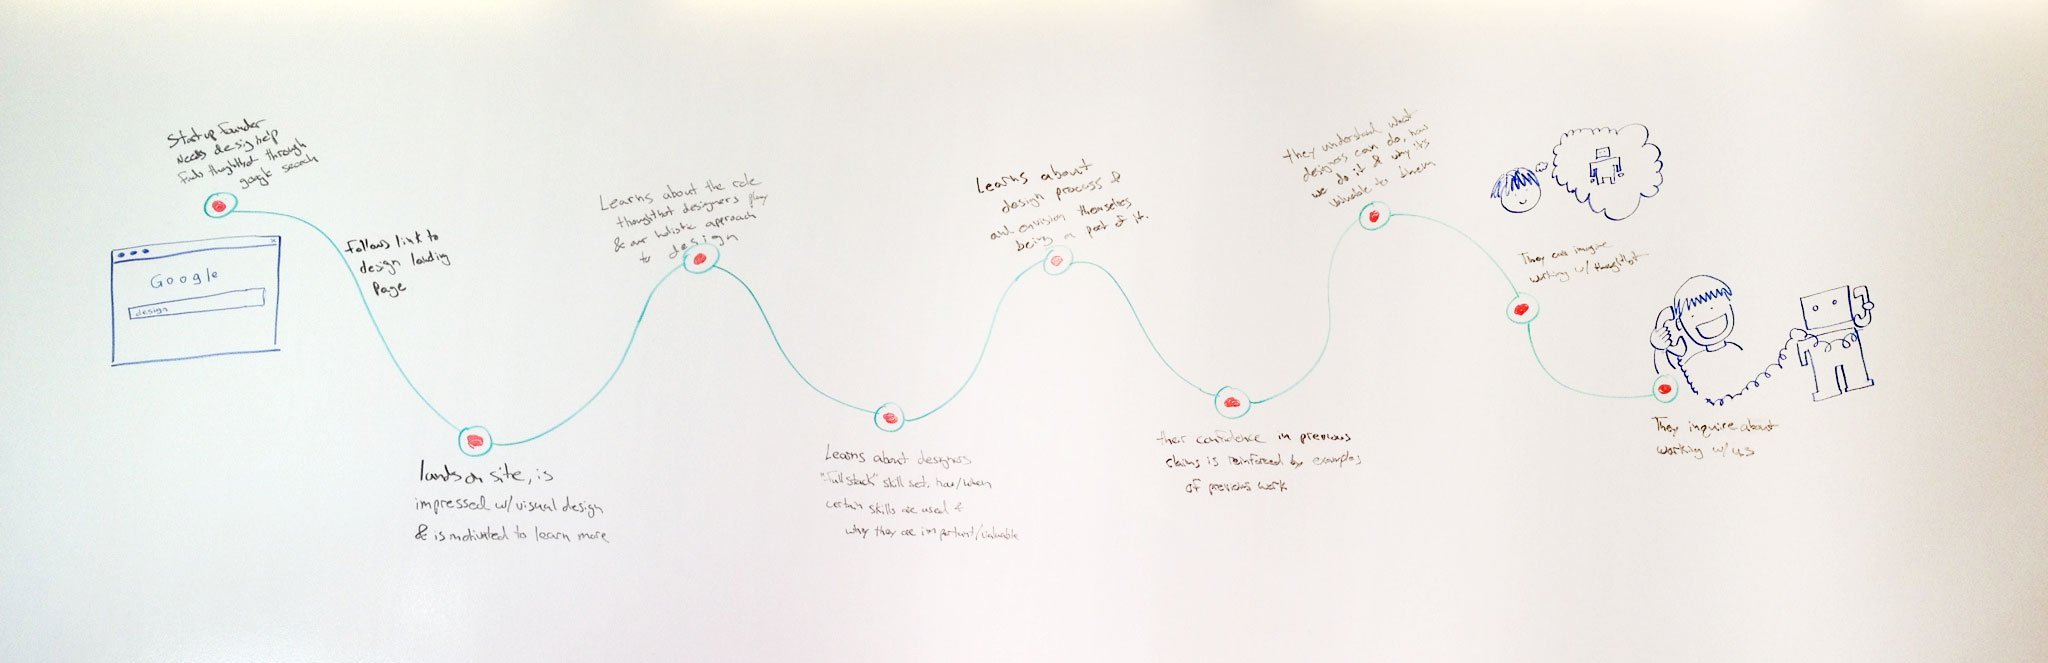 Startup founder
needs design help
finds thoughtbot through
google search
Google
design
follows link to
design landing
page
lands on site, is
impressed w/ visual design
& is motivated to learn more
Learns about the role
thoughtbot designers play
& our holistic approach
to design
Learns about designers
"full stack" skill set, how/when
certain skills are used &
why they are important/valuable
Learns about
design process &
and envision themselves
being a part of it.
their confidence in previous
claims is reinforced by examples
of previous work
they understand what
designers can do, how
we do it & why it's
valuable to them
They can imagine
working w/ thoughtbot
They inquire about
working w/ us